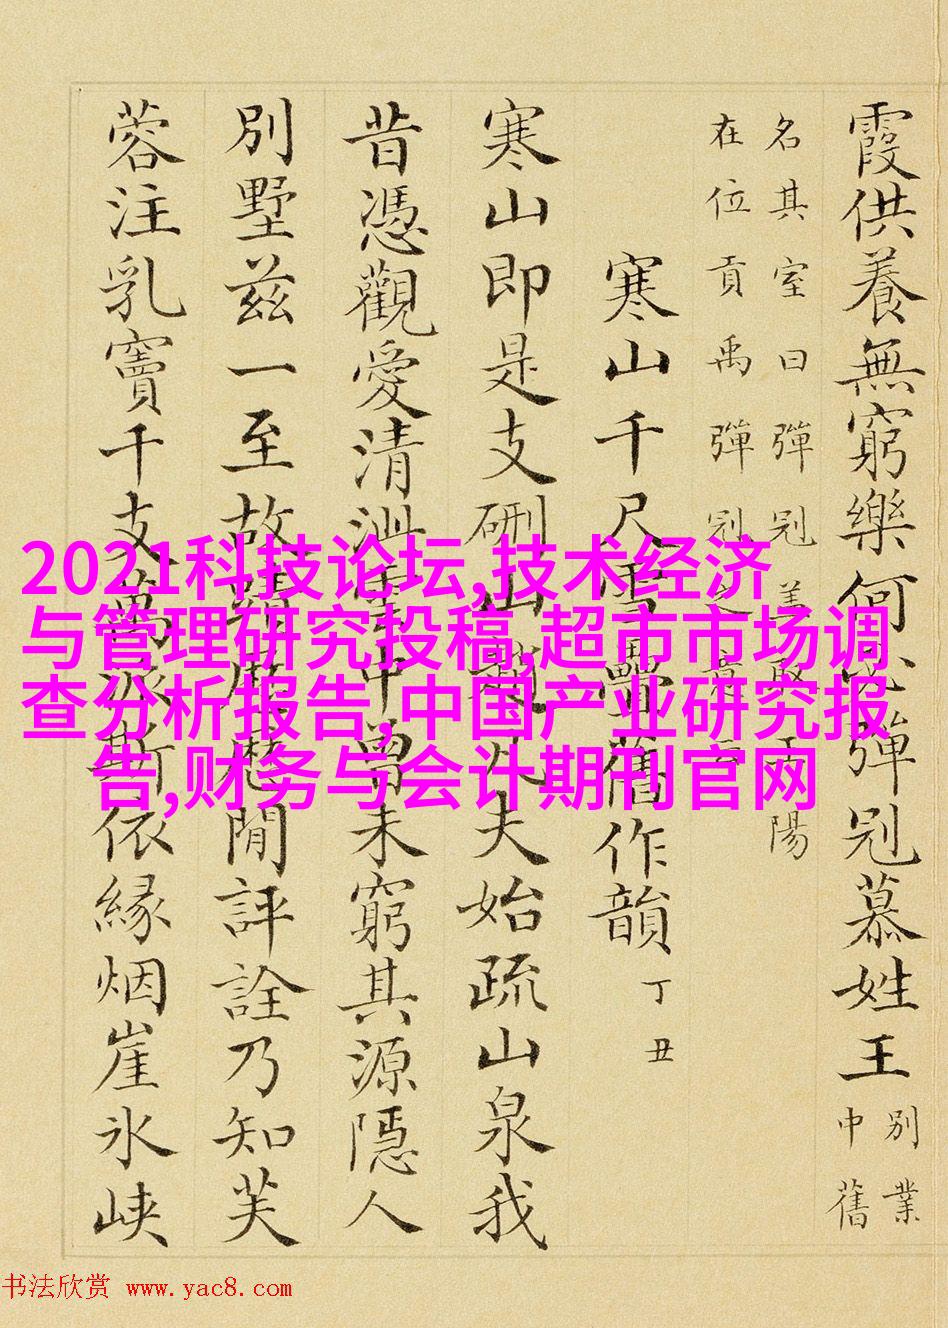 霞供養無窮樂何須彈冠慕姓王別業
中舊
名其室曰彈冠美敢王陽
在位貢禹彈冠之意云
寒山千尺雪疊舊作韻丁丑
寒山即是支硎山趙大夫始疏山泉我
昔憑觀愛清泚雲中曾未窮其源隱人
別墅茲一至故蹟歷歷閒評詮乃知芙
蓉注乳竇千支萬派斯依緣烟崖氷峽
2021科技论坛,技术经济
与管理研究投稿,超市市场调
查分析报告,中国产业研究报
告,财务与会计期刊官网
书法欣赏 www.yac8.com